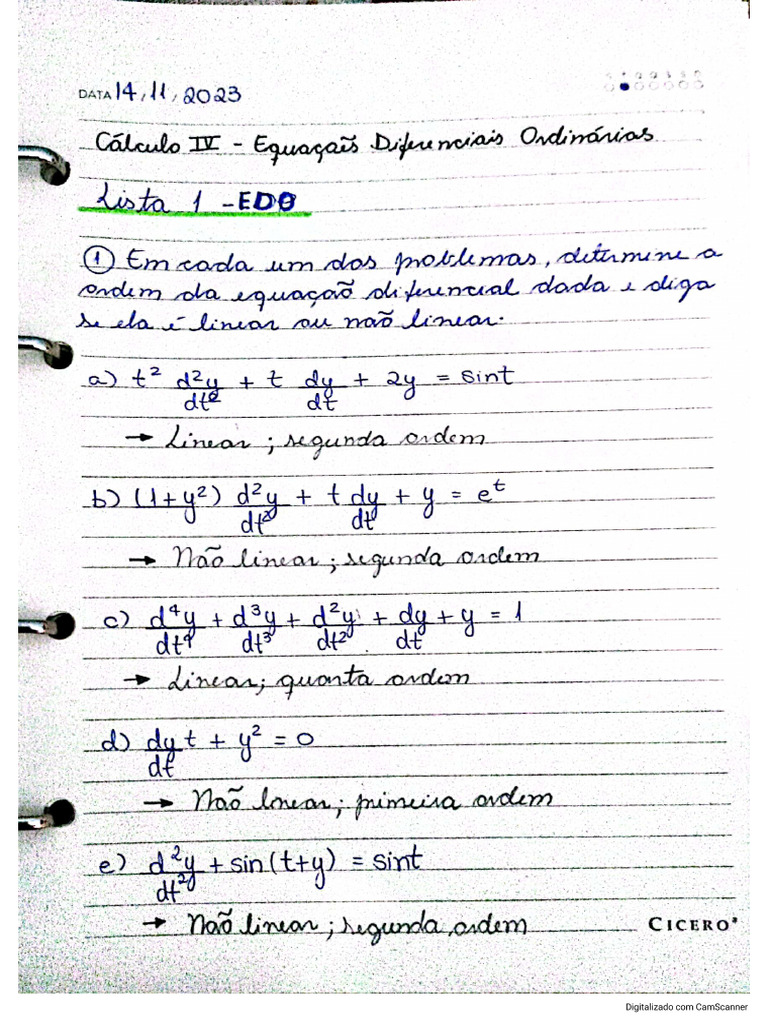 DATA 14, 11, 2023
Cálculo IV - Equações Diferenciais Ordinárias
Lista 1 - EDO
① Em cada um dos problemas, determine a
ordem da equação diferencial dada e diga
se ela é linear ou não linear.
a) t² d²y/dt² + t dy/dt + 2y = sint
→ Linear ; segunda ordem
b) (1+y²) d²y/dt² + t dy/dt + y = e^t
→ Não linear ; segunda ordem
c) d⁴y/dt⁴ + d³y/dt³ + d²y/dt² + dy/dt + y = 1
→ Linear; quarta ordem
d) dy/dt t + y² = 0
→ Não linear; primeira ordem
e) d²y/dt² + sin(t+y) = sint
→ Não linear ; segunda ordem
CICERO®
Digitalizado com CamScanner